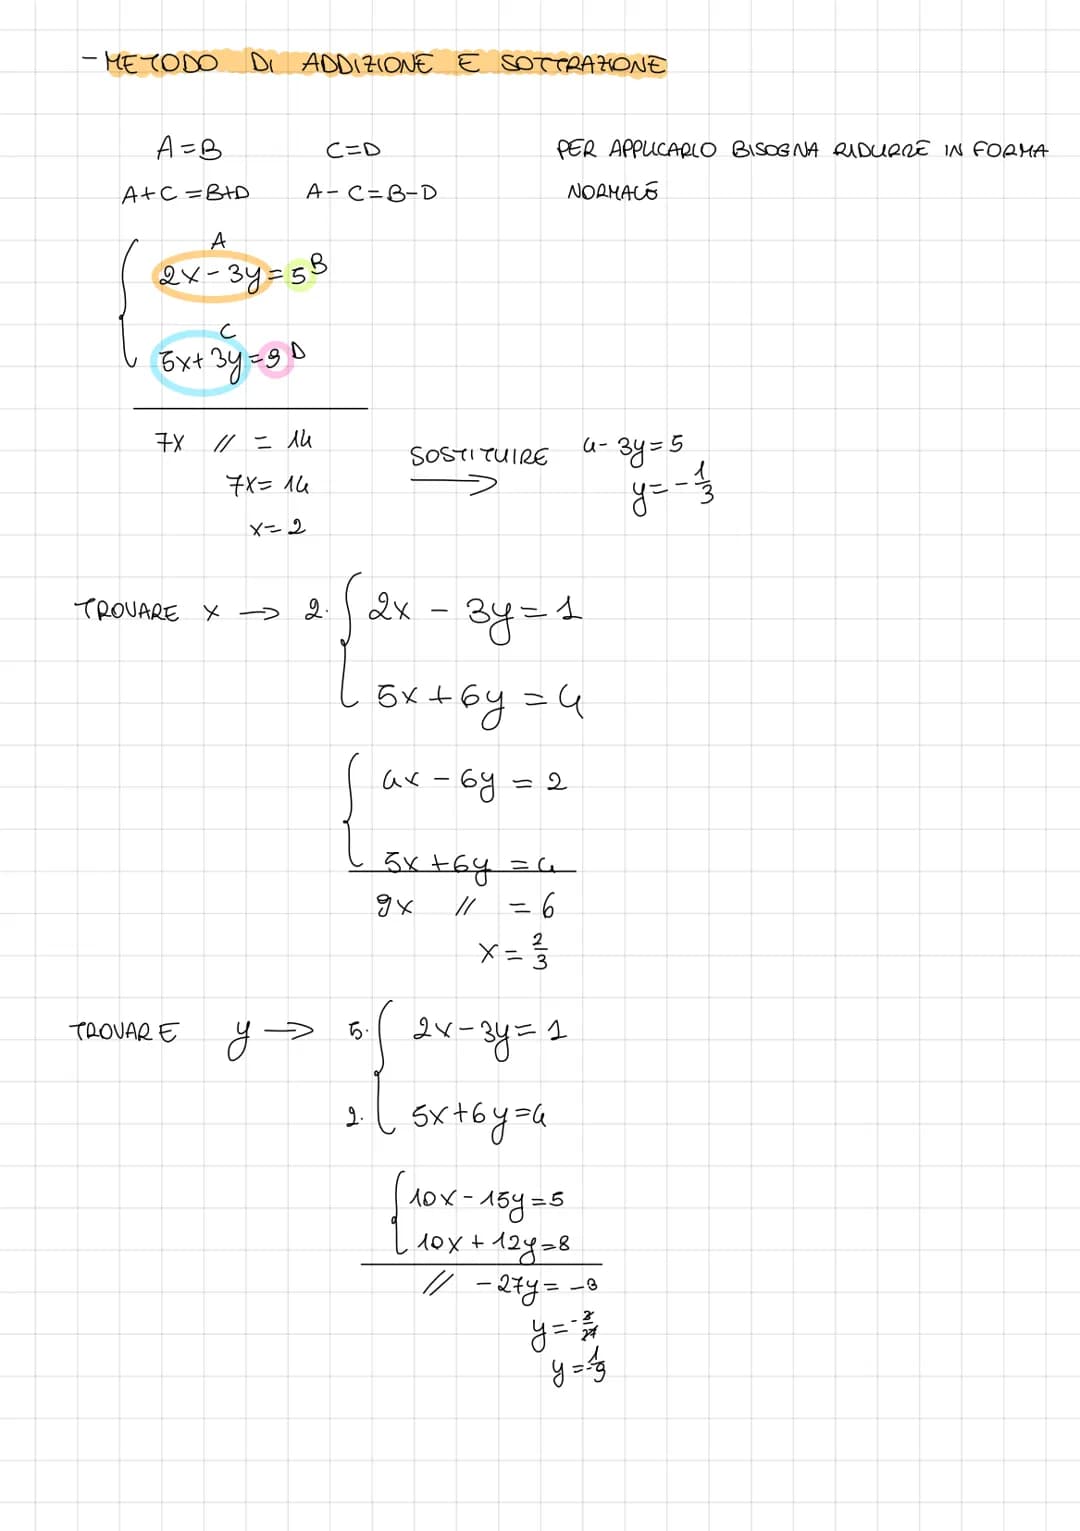 - METODO DI ADDIZIONE E SOTTRAZIONE
A=B C=D PER APPLICARLO BISOGNA RIDURRE IN FORMA
A+C=B+D A-C=B-D NORMALE
A
2x-3y=5 B
C
5x+3y=9 D
7x // = 14
SOSTITUIRE 4-3y=5
7x=14
y=-1/3
x=2
TROVARE x → 2. 2x - 3y=1
5x+6y=4
4x-6y=2
5x+6y=4
9x // = 6
x=2/3
TROVARE y → 5. 2x-3y=1
2. 5x+6y=4
10x-15y=5
10x+12y=8
// -27y=-3
y=-3/27
y=1/9